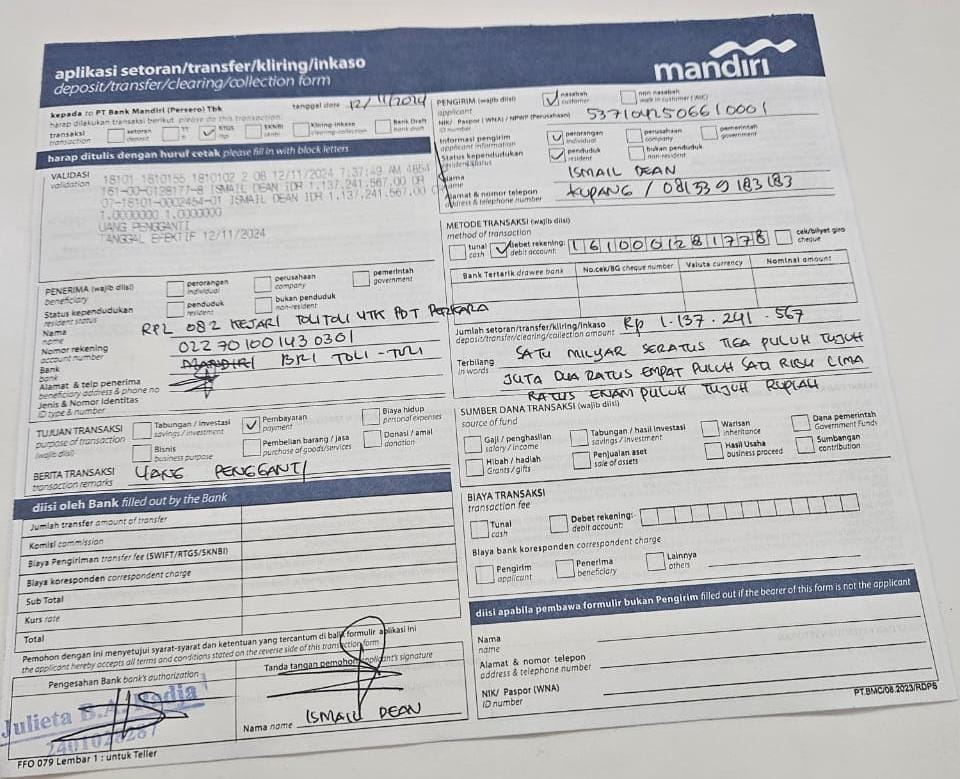 aplikasi setoran/transfer/kliring/inkaso
deposit/transfer/clearing/collection form
mandiri
kepada to PT Bank Mandiri (Persero) Tbk
tanggal date 12/11/2024
harap dilakukan transaksi berikut please do this transaction:
transaksi
transaction
setoran
deposit
RTGS
rtgs
SKNBI
sknbi
Kliring-Inkaso
clearing-collection
Bank Draft
bank draft
harap ditulis dengan huruf cetak please fill in with block letters
VALIDASI
validation
18101 1810155 1810102 2 08 12/11/2024 7:37:49 AM
161-00-0128177-8 ISMAIL DEAN IDR 1.137.241.567,00 DR
07-18101-0002454-01 ISMAIL DEAN IDR 1.137.241.567,00
1.0000000 1.0000000
UANG PENGGANTI
TANGGAL EFEKTIF 12/11/2024
PENERIMA (wajib diisi)
beneficiary
perorangan
individual
perusahaan
company
pemerintah
government
Status kependudukan
resident status
penduduk
resident
bukan penduduk
non-resident
Name
name
RPL 082 KEJARI TOLITOLI UTK PDT PERKARA
Nomor rekening
account number
022701001430301
Bank
bank
BRI TOLI-TOLI
Alamat & telp penerima
beneficiary address & phone no
Jenis & Nomor Identitas
ID type & number
TUJUAN TRANSAKSI
purpose of transaction
(wajib diisi)
Tabungan / investasi
savings / investment
Pembayaran
payment
Biaya hidup
personal expenses
Bisnis
business purpose
Pembelian barang / jasa
purchase of goods/services
Donasi / amal
donation
BERITA TRANSAKSI
transaction remarks
UANG PENGGANTI
diisi oleh Bank filled out by the Bank
Jumlah transfer amount of transfer
Komisi commission
Biaya Pengiriman transfer fee (SWIFT/RTGS/SKNBI)
Biaya koresponden correspondent charge
Sub Total
Kurs rate
Total
Pemohon dengan ini menyetujui syarat-syarat dan ketentuan yang tercantum di balik formulir aplikasi ini
the applicant hereby accepts all terms and conditions stated on the reverse side of this transaction form
Pengesahan Bank bank's authorization
Tanda tangan pemohon applicant's signature
Julieta B.A. Radja
Nama name ISMAIL DEAN
FFO 079 Lembar 1 : untuk Teller
PENGIRIM (wajib diisi)
applicant
nasabah
customer
non nasabah
walk in customer (WIC)
NIK/ Paspor (WNA) / NPWP (Perusahaan)
ID number
5371042506610001
Informasi pengirim
applicant information
perorangan
individual
perusahaan
company
pemerintah
government
Status kependudukan
penduduk
resident
bukan penduduk
non-resident
Nama
name
ISMAIL DEAN
Alamat & nomor telepon
address & telephone number
KUPANG / 081339183183
METODE TRANSAKSI (wajib diisi)
method of transaction
tunai
cash
debet rekening:
debit account:
1610001281778
cek/bilyet giro
cheque
Bank Tertarik drawee bank
No.cek/BG cheque number
Valuta currency
Nominal amount
Jumlah setoran/transfer/kliring/inkaso
deposit/transfer/clearing/collection amount
Rp 1.137.241.567
Terbilang
in words
SATU MILYAR SERATUS TIGA PULUH TUJUH
JUTA DUA RATUS EMPAT PULUH SATU RIBU LIMA
RATUS ENAM PULUH TUJUH RUPIAH
SUMBER DANA TRANSAKSI (wajib diisi)
source of fund
Gaji / penghasilan
salary / income
Tabungan / hasil investasi
savings / investment
Warisan
inheritance
Dana pemerintah
Government Funds
Hibah / hadiah
Grants / gifts
Penjualan aset
sale of assets
Hasil Usaha
business proceed
Sumbangan
contribution
BIAYA TRANSAKSI
transaction fee
Tunai
cash
Debet rekening:
debit account:
Biaya bank koresponden correspondent charge
Pengirim
applicant
Penerima
beneficiary
Lainnya
others
diisi apabila pembawa formulir bukan Pengirim filled out if the bearer of this form is not the applicant
Nama
name
Alamat & nomor telepon
address & telephone number
NIK/ Paspor (WNA)
ID number
PT.BMC/08.2023/RDPS